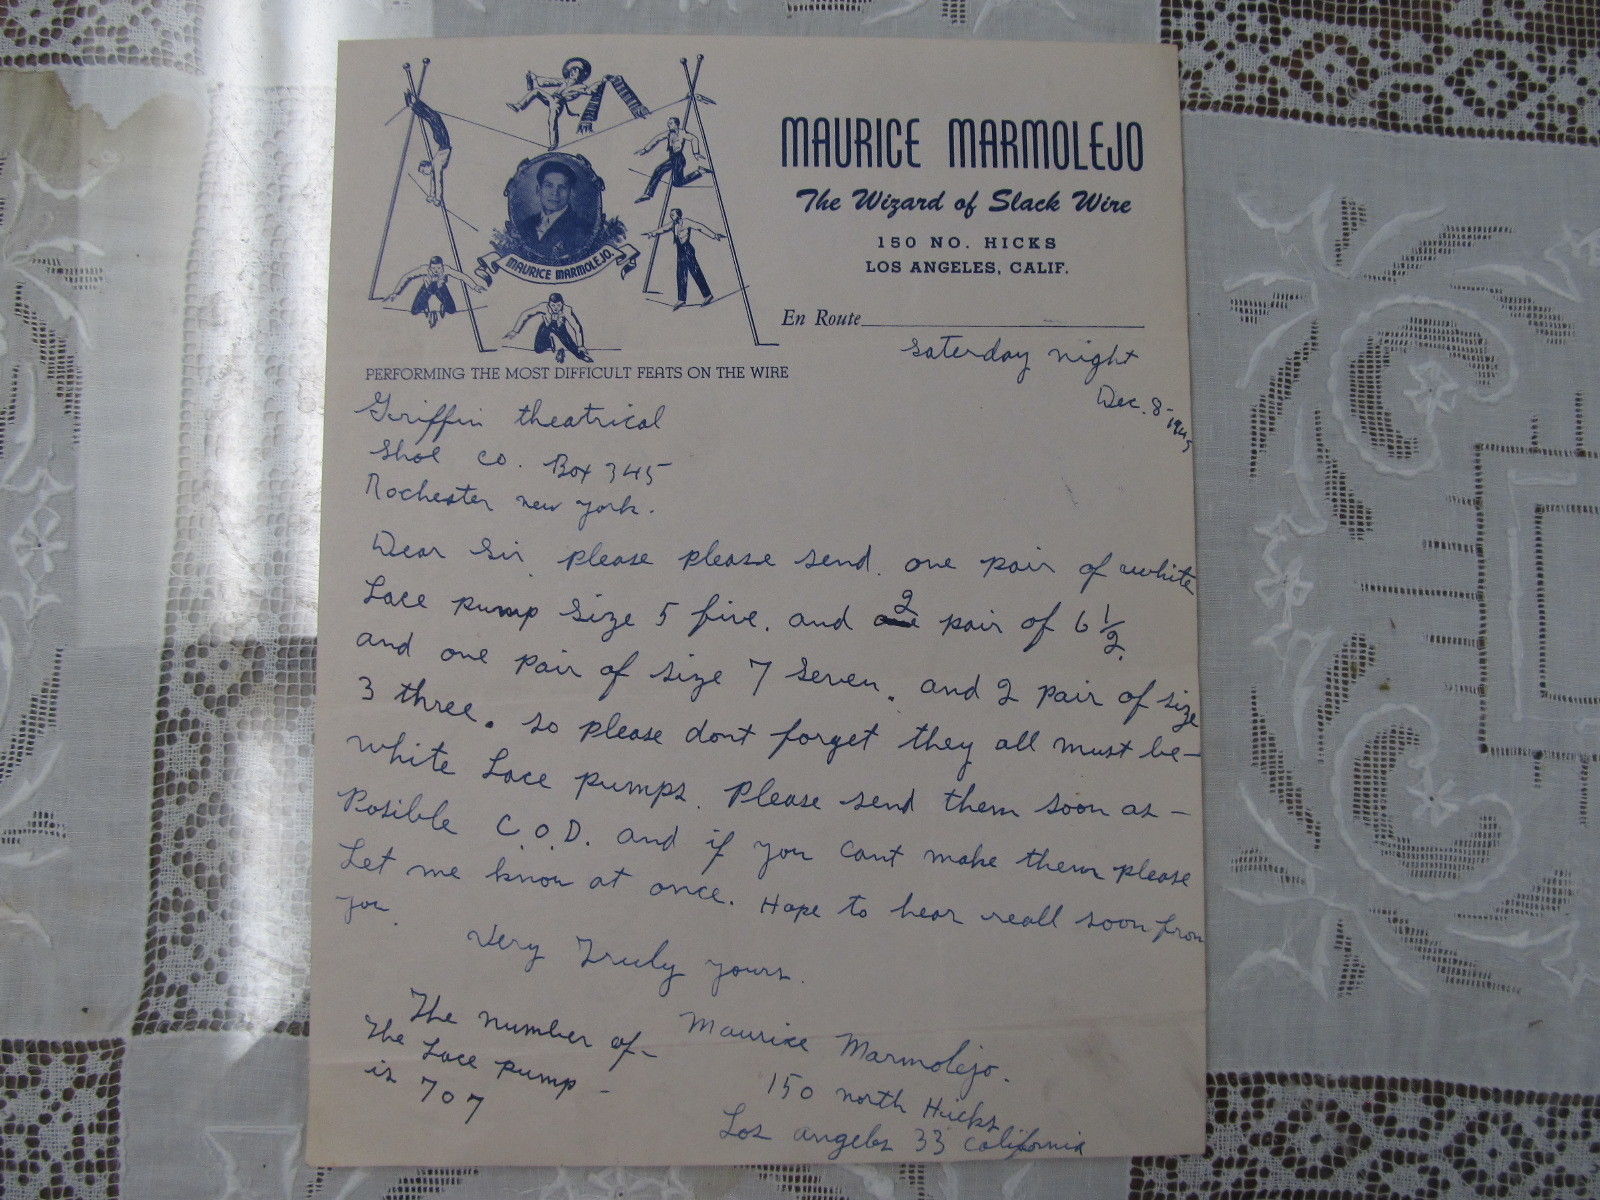 MAURICE MARMOLEJO
The Wizard of Slack Wire
150 NO. HICKS
LOS ANGELES, CALIF.
MAURICE MARMOLEJO.
En Route
PERFORMING THE MOST DIFFICULT FEATS ON THE WIRE
Saterday night
Dec. 8-1945
Griffin theatrical
Shoe co. Box 345
Rochester new york.
Dear Sir please please send. one pair of white
Lace pump size 5 five. and 2 pair of 6 1/2.
and one pair of size 7 seven. and 2 pair of size
3 three. so please dont forget they all must be-
white Lace pumps. Please send them soon as-
Posible C.O.D. and if you cant make them please
Let me know at once. Hope to hear reall soon from
you.
Very Truly yours.
Maurice Marmolejo.
150 north Hicks
Los angeles 33 california
The number of-
The Lace pump-
is 707